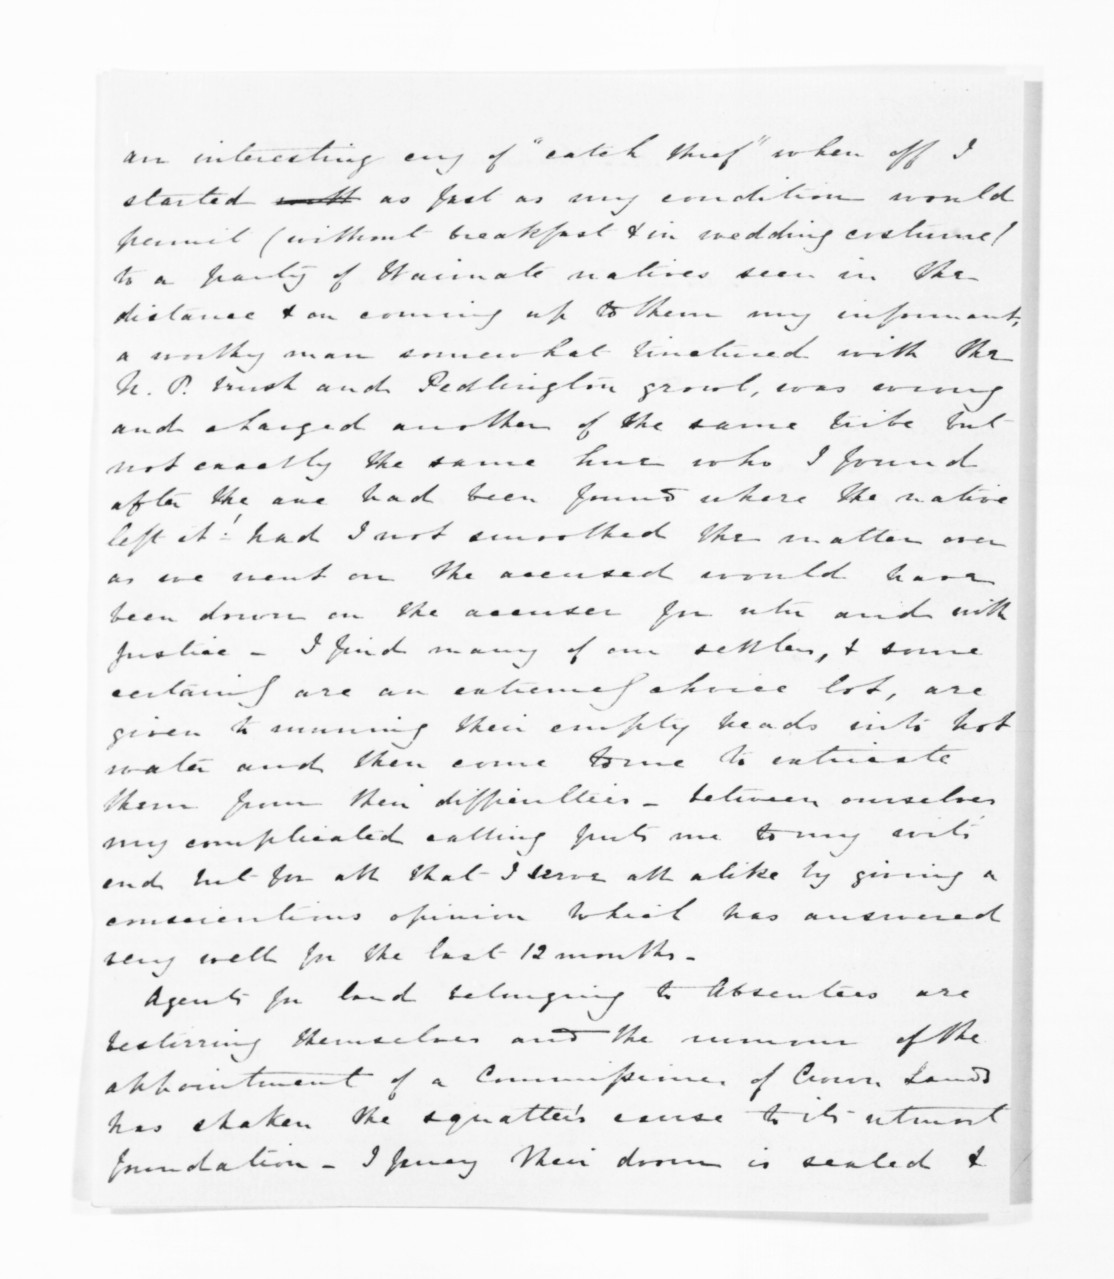 an interesting cry of "catch thief" when off I
started with as fast as my condition would
permit (without breakfast & in wedding costume)
to a party of Waimate natives seen in the
distance & on coming up to them my informant,
a worthy man somewhat tinctured with the
N. P. trush and Pedlington growl, was wrong
and charged another of the same tribe but
not exactly the same hue who I found
after the axe had been found where the native
left it! had I not smoothed the matter over
as we went on the accused would have
been down on the accuser for utu and with
justice - I find many of our settlers, & some
certainly are an extremely choice lot, are
given to running their empty heads into hot
water and then come to me to extricate
them from their difficulties - between ourselves
my complicated calling puts me to my wits'
end but for all that I serve all alike by giving a
conscientious opinion which has answered
very well for the last 12 months -
Agents for land belonging to Absentees are
bestirring themselves and the rumour of the
appointment of a Commissioner of Crown Lands
has shaken the squatter's cause to its utmost
foundation - I fancy their doom is sealed &